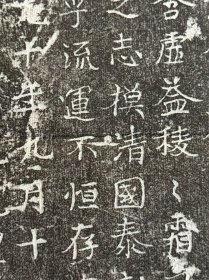 虛益稜〻霜
之志模清國泰
乎流運不恒存
十年九月十